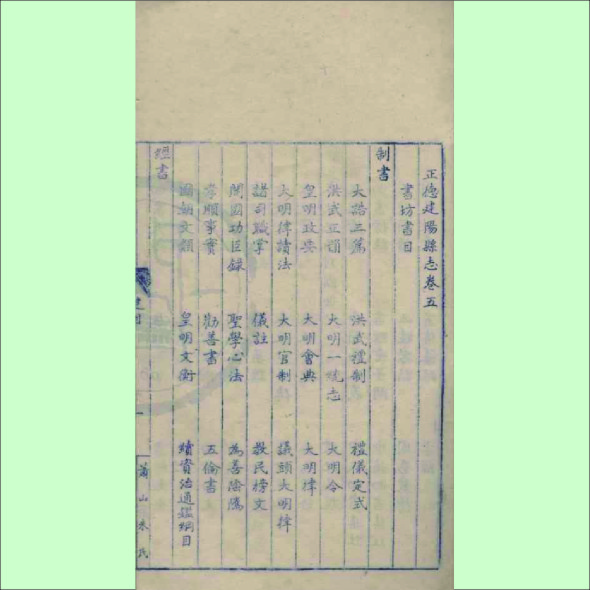 正德建陽縣志卷五
書坊書目
制書
大誥三篇 洪武禮制 禮儀定式
洪武正韻 大明一統志 大明令
皇明政要 大明會典 大明律
大明律讀法 大明官制 議頭大明律
諸司職掌 儀註 教民榜文
開國功臣錄 聖學心法 為善陰隲
孝順事實 勸善書 五倫書
皇明文衡 續資治通鑑綱目
經書
蕭山朱氏